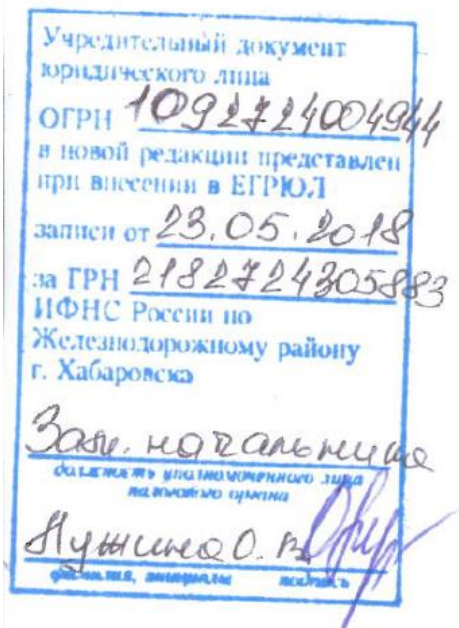 Учредительный документ
юридического лица
ОГРН 1092724004944
в новой редакции представлен
при внесении в ЕГРЮЛ
записи от 23.05.2018
за ГРН 2182724305883
ИФНС России по
Железнодорожному району
г. Хабаровска
Зам. начальника
должность уполномоченного лица
налогового органа
Лужина О. В.
фамилия, инициалы подпись